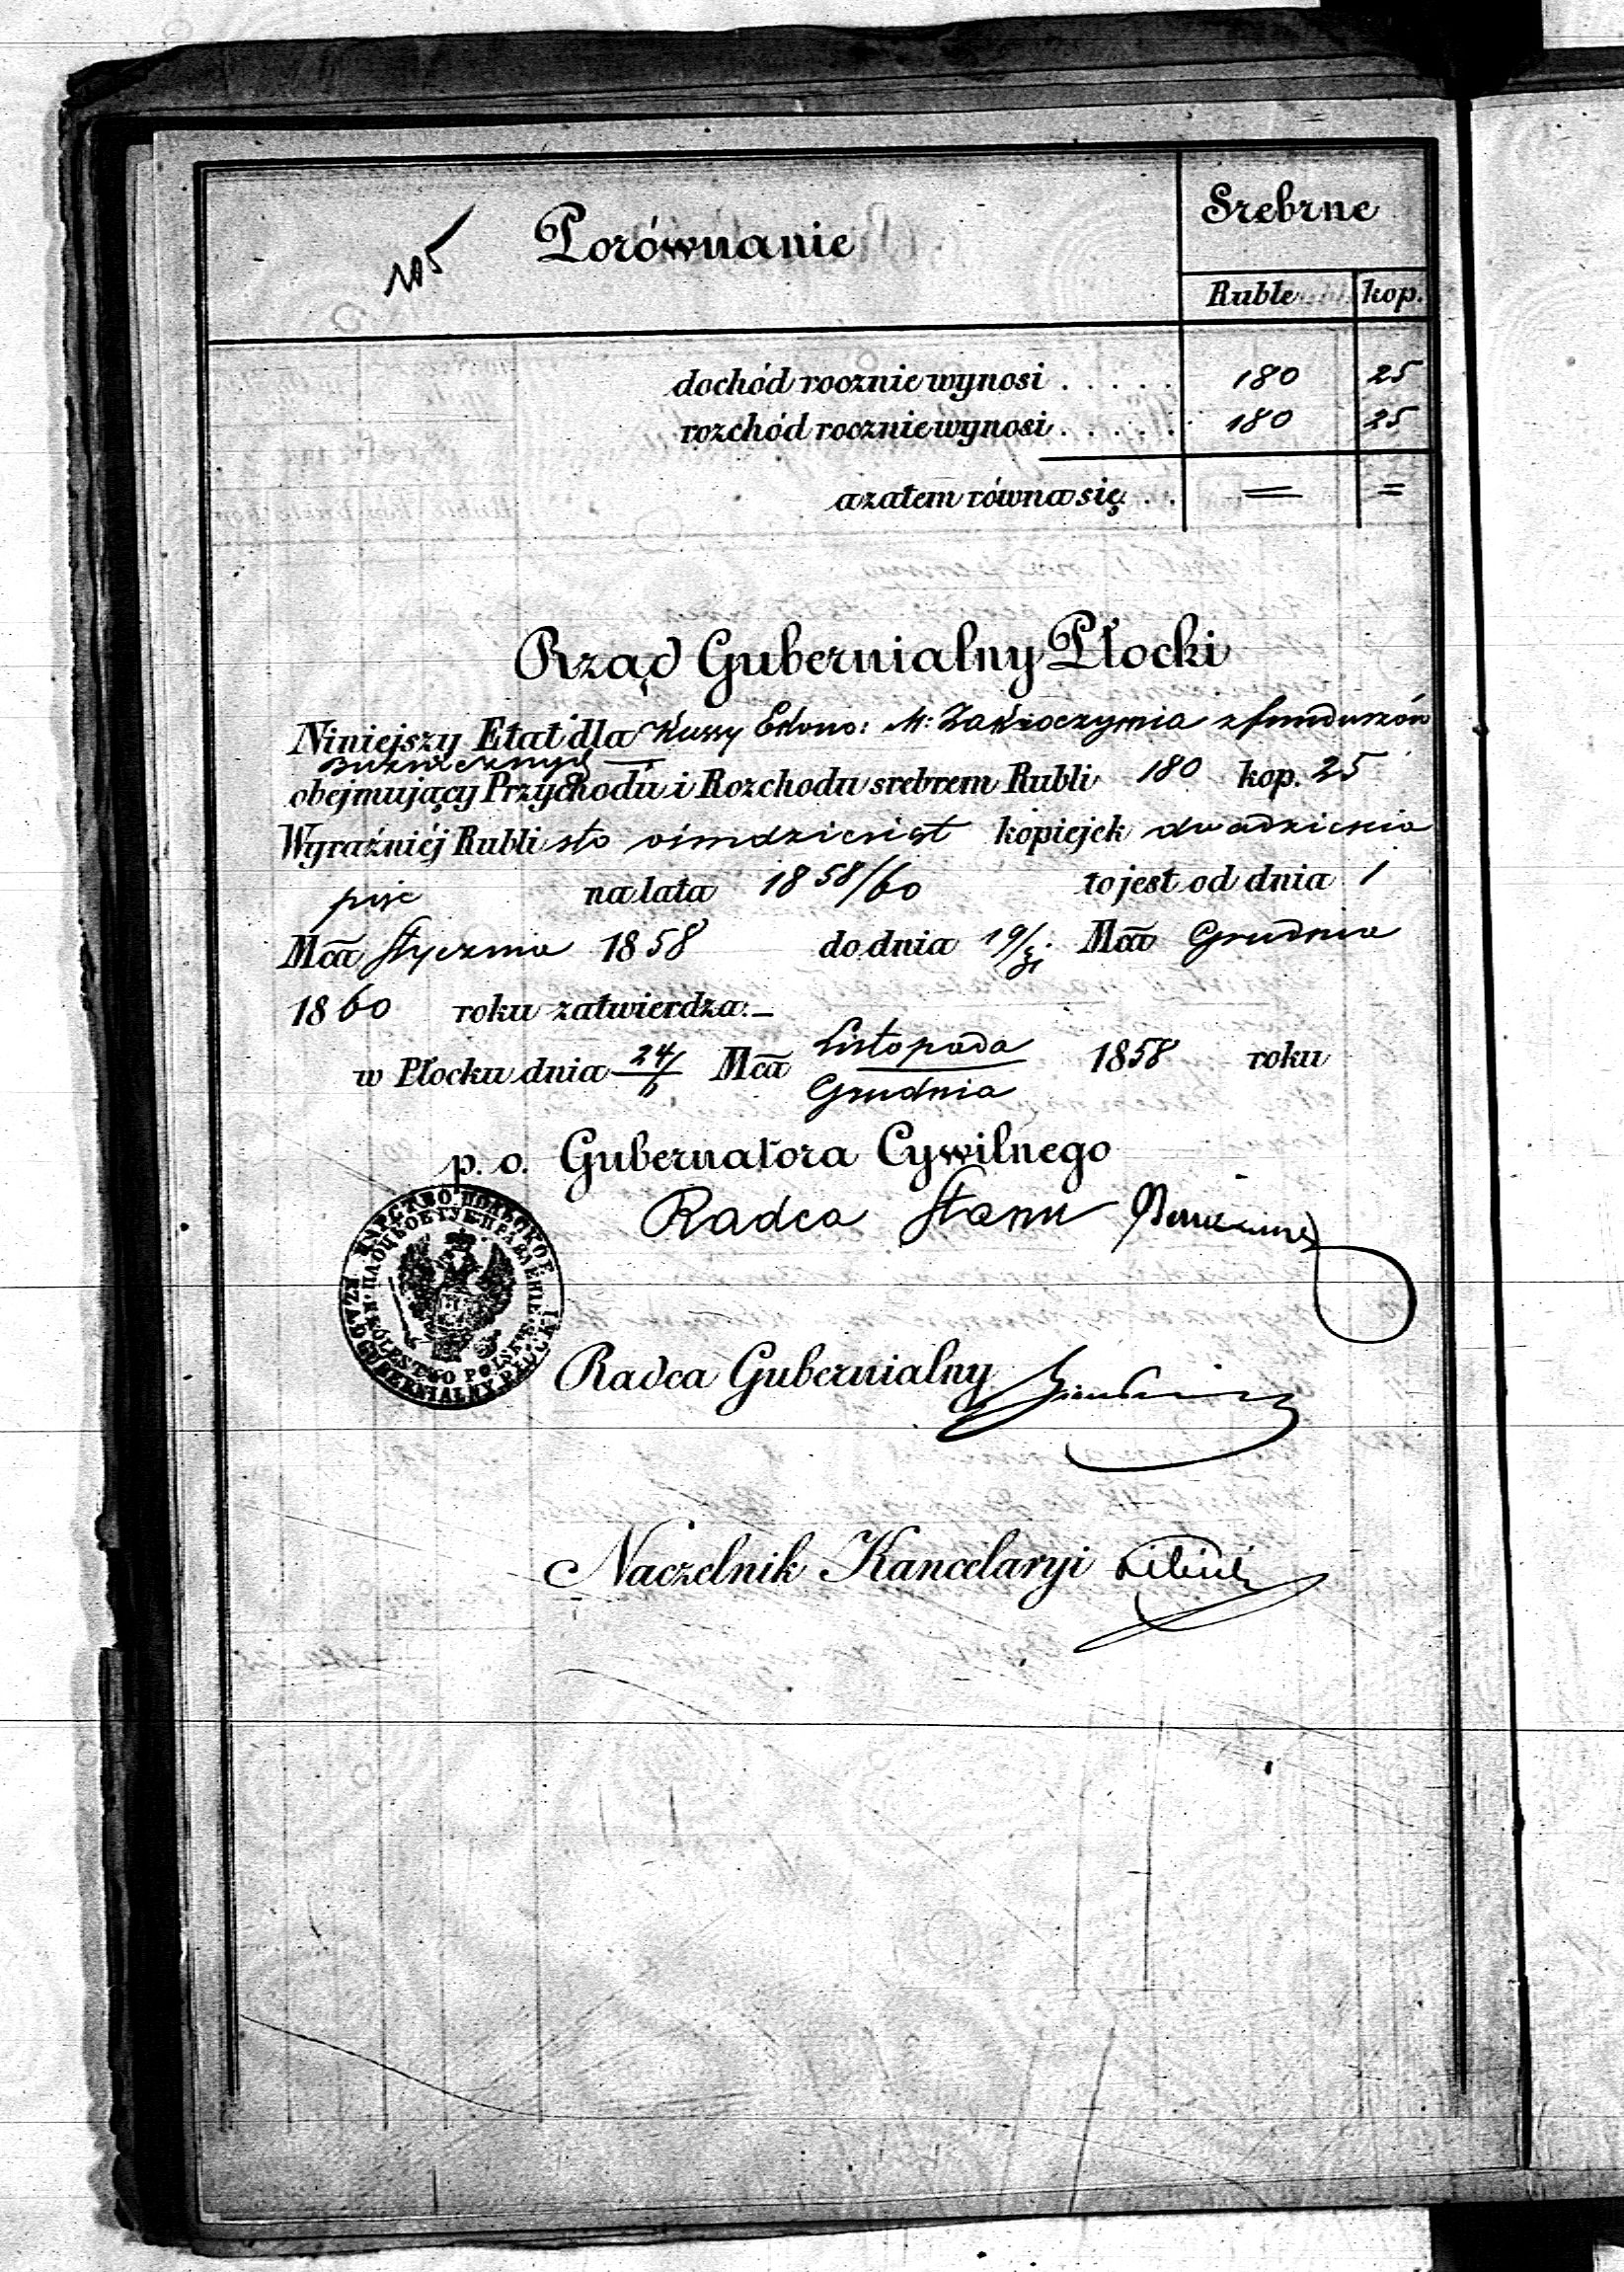 105
Porównanie
Srebrne
Ruble kop.
dochód rocznie wynosi . . . . . 180 25
rozchód rocznie wynosi . . . . . 180 25
a zatem równa się . . = =
Rząd Gubernialny Płocki
Niniejszy Etat dla Kassy Ekono: M: Zakroczymia z funduszów
Bużnicznych
obejmujący Przychodu i Rozchodu srebrem Rubli 180 kop. 25
Wyraźniéj Rubli sto ośmdziesiąt kopiejek dwadzieścia
pięć na lata 1858/60 to jest od dnia 1
Mca Stycznia 1858 do dnia 19/31 Mca Grudnia
1860 roku zatwierdza.—
w Płocku dnia 24/6 Mca Listopada/Grudnia 1858 roku
p. o. Gubernatora Cywilnego
Radca Stanu
ЦАРСТВО ПОЛЬСКОЕ
ПЛОЦКОЕ ГУБ. ПРАВЛЕНІЕ
KRÓLESTWO POLSKIE
RZĄD GUBERNIALNY PŁOCKI
Radca Gubernialny
Naczelnik Kancelaryi